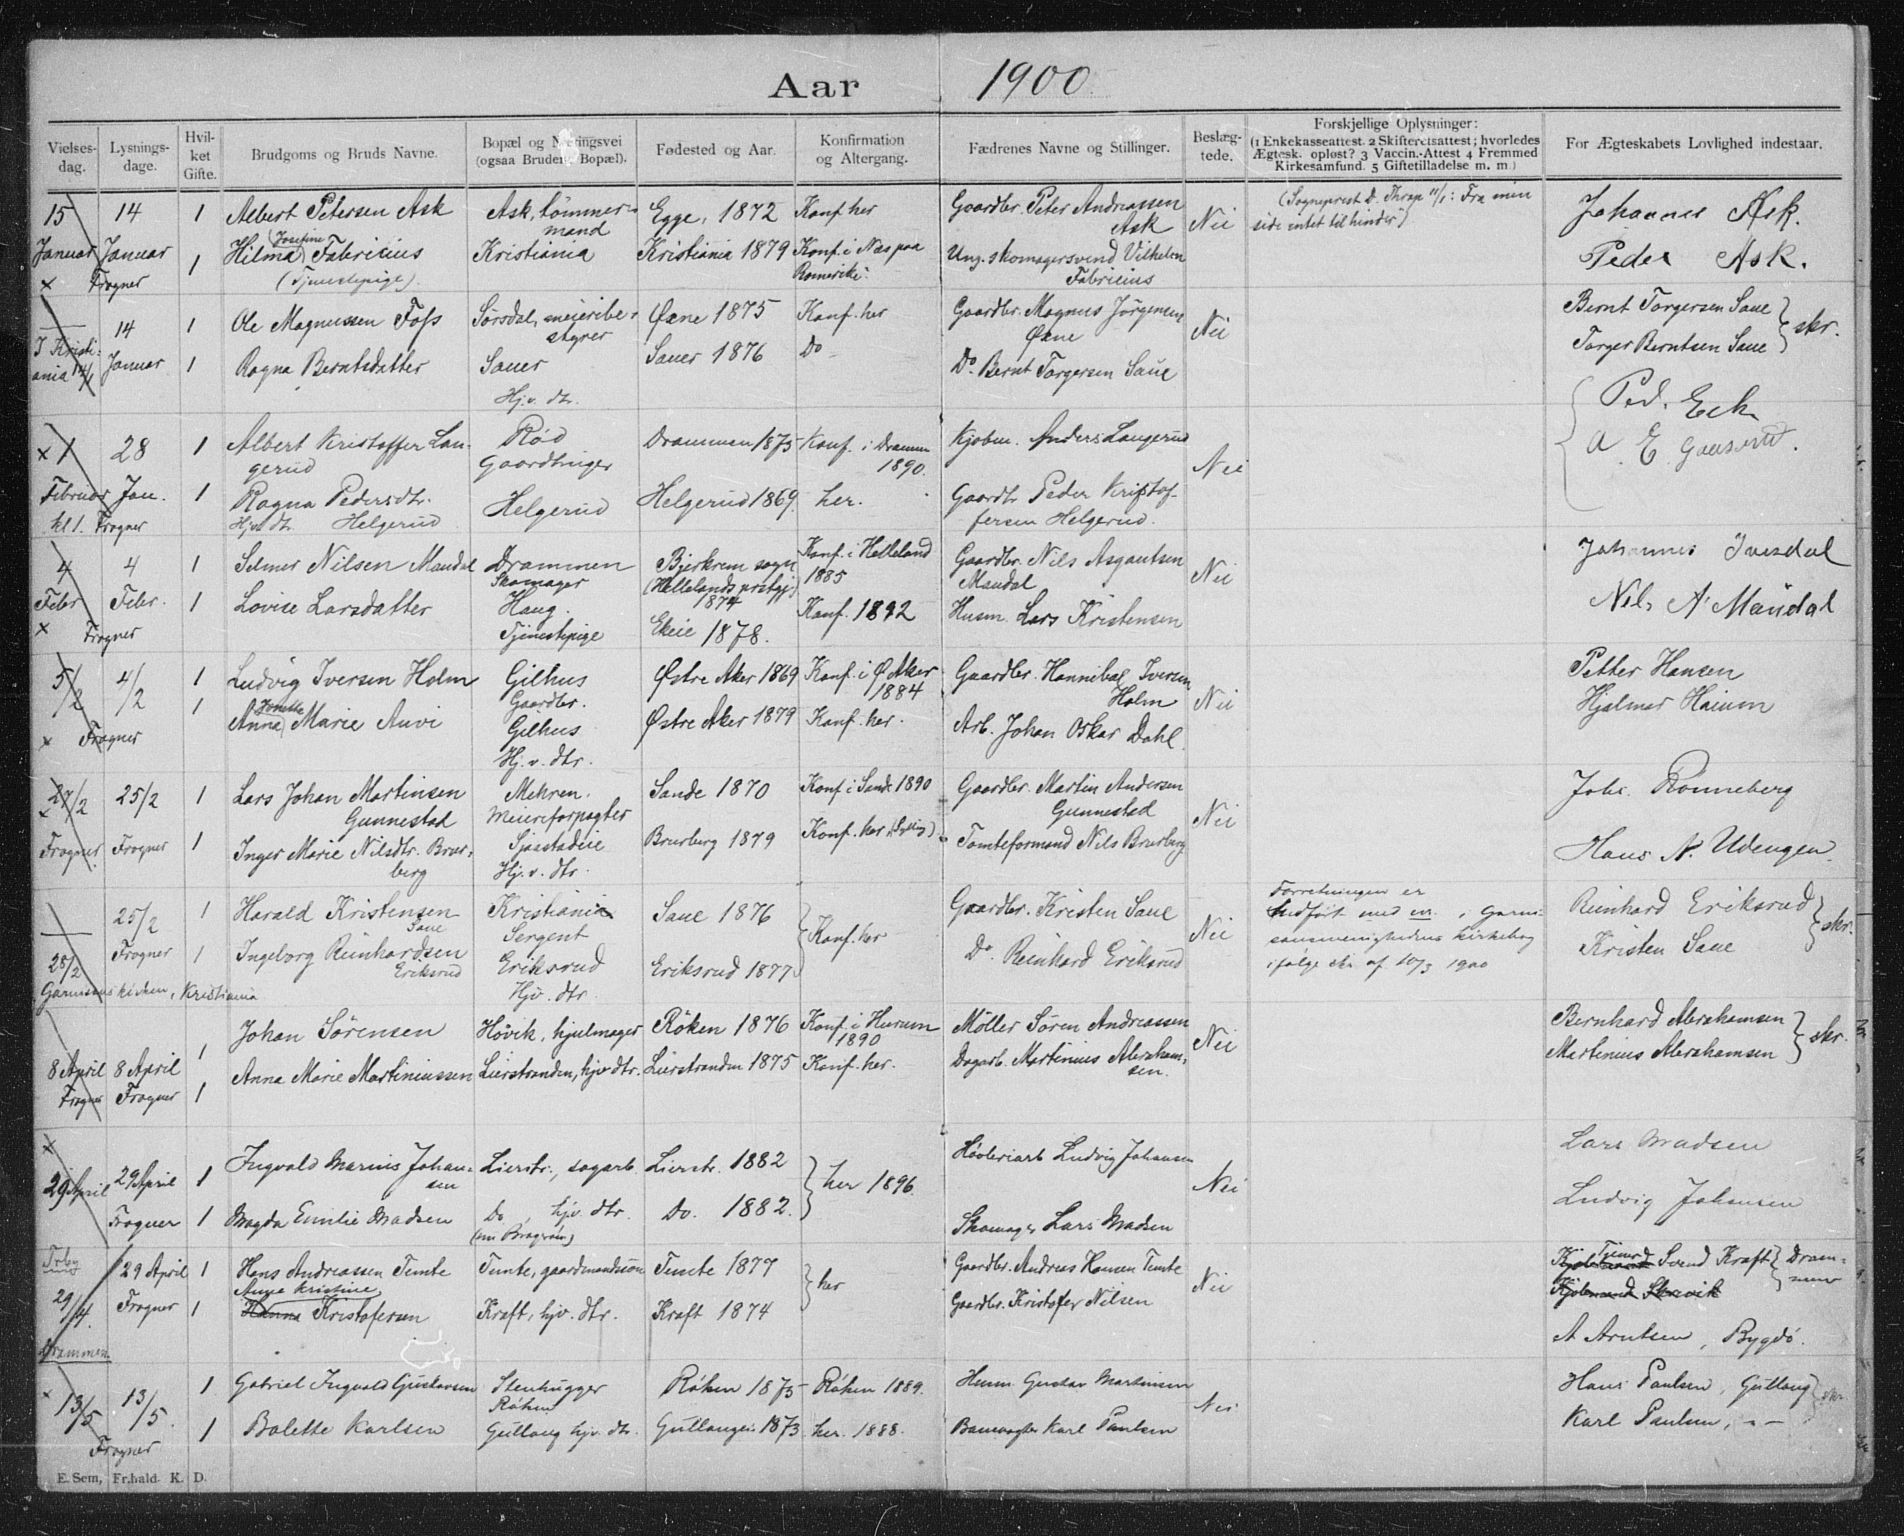 Aar 1900
Vielses-dag. Lysnings-dage. Hvil-ket Gifte. Brudgoms og Bruds Navne. Bopæl og Næringsvei (ogsaa Brudens Bopæl). Fødested og Aar. Konfirmation og Altergang. Fædrenes Navne og Stillinger. Beslæg-tede. Forskjellige Oplysninger: (1 Enkekasseattest. 2 Skifteretsattest; hvorledes Ægtesk. opløst? 3 Vaccin.-Attest 4 Fremmed Kirkesamfund. 5 Giftetilladelse m. m.) For Ægteskabets Lovlighed indestaar.
15 14 1 Albert Petersen Ask Ask, tømmer-mand Egge, 1872 Konf. her Gaardbr. Peter Andreassen Ask Nei (Sogneprest D. Thrap 11/1: Fra min side intet til hinder) Johannes Ask.
Januar Januar 1 Hilma Josefine Fabricius Kristiania Kristiania 1879 Konf. i Næs paa Romerike. Ung. skomagersvend Vilhelm Fabricius Peder Ask.
x Frogner (Tjenestepige)
14 1 Ole Magnussen Foss Sørsdal, meieribe-styrer Øæne 1875 Konf. her Gaardbr. Magnus Jörgensen Øæne Nei Bernt Torgersen Saue
I Kristi-ania 14/1 Januar 1 Ragna Berntsdatter Sauer Sauer 1876 Do Do. Bernt Torgersen Saue Torger Berntsen Saue } skr.
Hj. v. dtr.
x 1 28 1 Albert Kristoffer Lan-gerud Rød Gaardbruger Drammen 1875 Konf. i Drammen 1890. Kjøbm. Anders Langerud Nei Ped. Eek
Februar Jan. 1 Ragna Pedersdtr. Helgerud Helgerud 1869 her. Gaardb. Peder Kristof-fersen Helgerud. A E Gauserud.
kl 1. Frogner Hjv. dtr. Helgerud
4 4 1 Selmer Nilsen Maudal Drammen Skomager Bjerkrem sogn (Hellelands prstgj) 1874 Konf. i Helleland 1885 Gaardbr. Nils Asgautsen Maudal Nei Johannes Ivesdal
Febr Febr. 1 Lovise Larsdatter Haug. Tjenestepige Ekeie 1878. Konf. 1892 Husm. Lars Kristensen Nils A Maudal
x Frogner
5/2 4/2 1 Ludvig Iversen Holm Gilhus Gaardbr. Østre Aker 1869 Konf. i Ø Aker 1884 Gaardbr. Hannibal Iversen Holm Nei Petter Hansen
1 Anna Marie Auvi Gilhus Hj. v. dtr. Østre Aker 1879 Konf. her. Arb. Johan Oskar Dahl. Hjalmar Haium
x Frogner
27/2 25/2 1 Lars Johan Martinsen Gunnestad Mehren. Meieriforpagter Sande 1870 Konf i Sande 1890 Gaardbr. Martin Andersen Gunnestad Nei Johs. Rönneberg
Frogner Frogner 1 Inger Marie Nilsdtr. Brur-berg Sjaastadeie Hj. v. dtr. Brurberg 1879 Konf. her (Sylling) Tomteformand Nils Brurberg Hans N. Udengen
25/2 1 Harald Kristensen Saue Kristiania Sergent Saue 1876 Konf. her Gaardbr. Kristen Saue Nei Forretningen er indført med nr. i Garni-sonsmenighedens kirkebog ifølge skr. af 10/3 1900 Reinhard Eriksrud
28/2 Frogner 1 Ingeborg Reinhardsen Eriksrud Eriksrud Hjv. dtr. Eriksrud 1877 Do. Reinhard Eriksrud Kristen Saue } skr.
Garnisonskirken, Kristiania
8 April 8 April 1 Johan Sörensen Hövik, hjulmager Röken 1876 Konf. i Hurum 1890 Möller Sören Andreassen Nei Bernhard Abrahamsen
Frogner Frogner 1 Anna Marie Martiniussen Lierstranden, hjv dtr. Lierstranden 1875 Konf. her. Dagarb. Martinius Abraham-sen. Martinius Abrahamsen } skr.
x
29 April 29 April 1 Ingvald Marius Johan-sen Lierstr., sagarb. Lierstr. 1882 her 1896. Høvleriarb Ludvig Johansen Nei Lars Madsen
Frogner 1 Magda Emilie Madsen Do, hjv. dtr. (nu Bragerøen) Do. 1882. Skomager Lars Madsen Ludvig Johansen
29 April 1 Hans Andreassen Temte Temte, gaardmandssøn Temte 1877 her Gaardbr. Andreas Hansen Temte Nei Svend Kraft } Dram-men
29/4 Frogner 1 Hanna Anne Kristine Kristofersen Kraft, hjv. dtr. Kraft 1874 Gaardbr. Kristofer Nilsen Kjøbmand Skrivik
Drammen. A Arntsen, Bygdö.
x 13/5 13/5. 1 Gabriel Ingvald Gustavsen Stenhugger Röken Röken 1875 Röken 1889. Husm. Gustav Martinsen Nei Hans Paulsen, Gullaug
Frogner 1 Bolette Karlsen Gullaug hjv. dtr. Gullaugei 1873 her. 1888. Banevogter Karl Paulsen Karl Paulsen, -"- } skr.
E. Sem, Fr.hald. K. D.